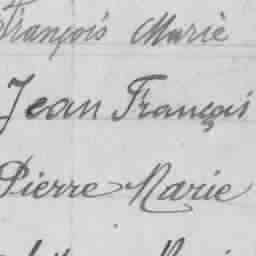 François Marie
Jean François
Pierre Marie